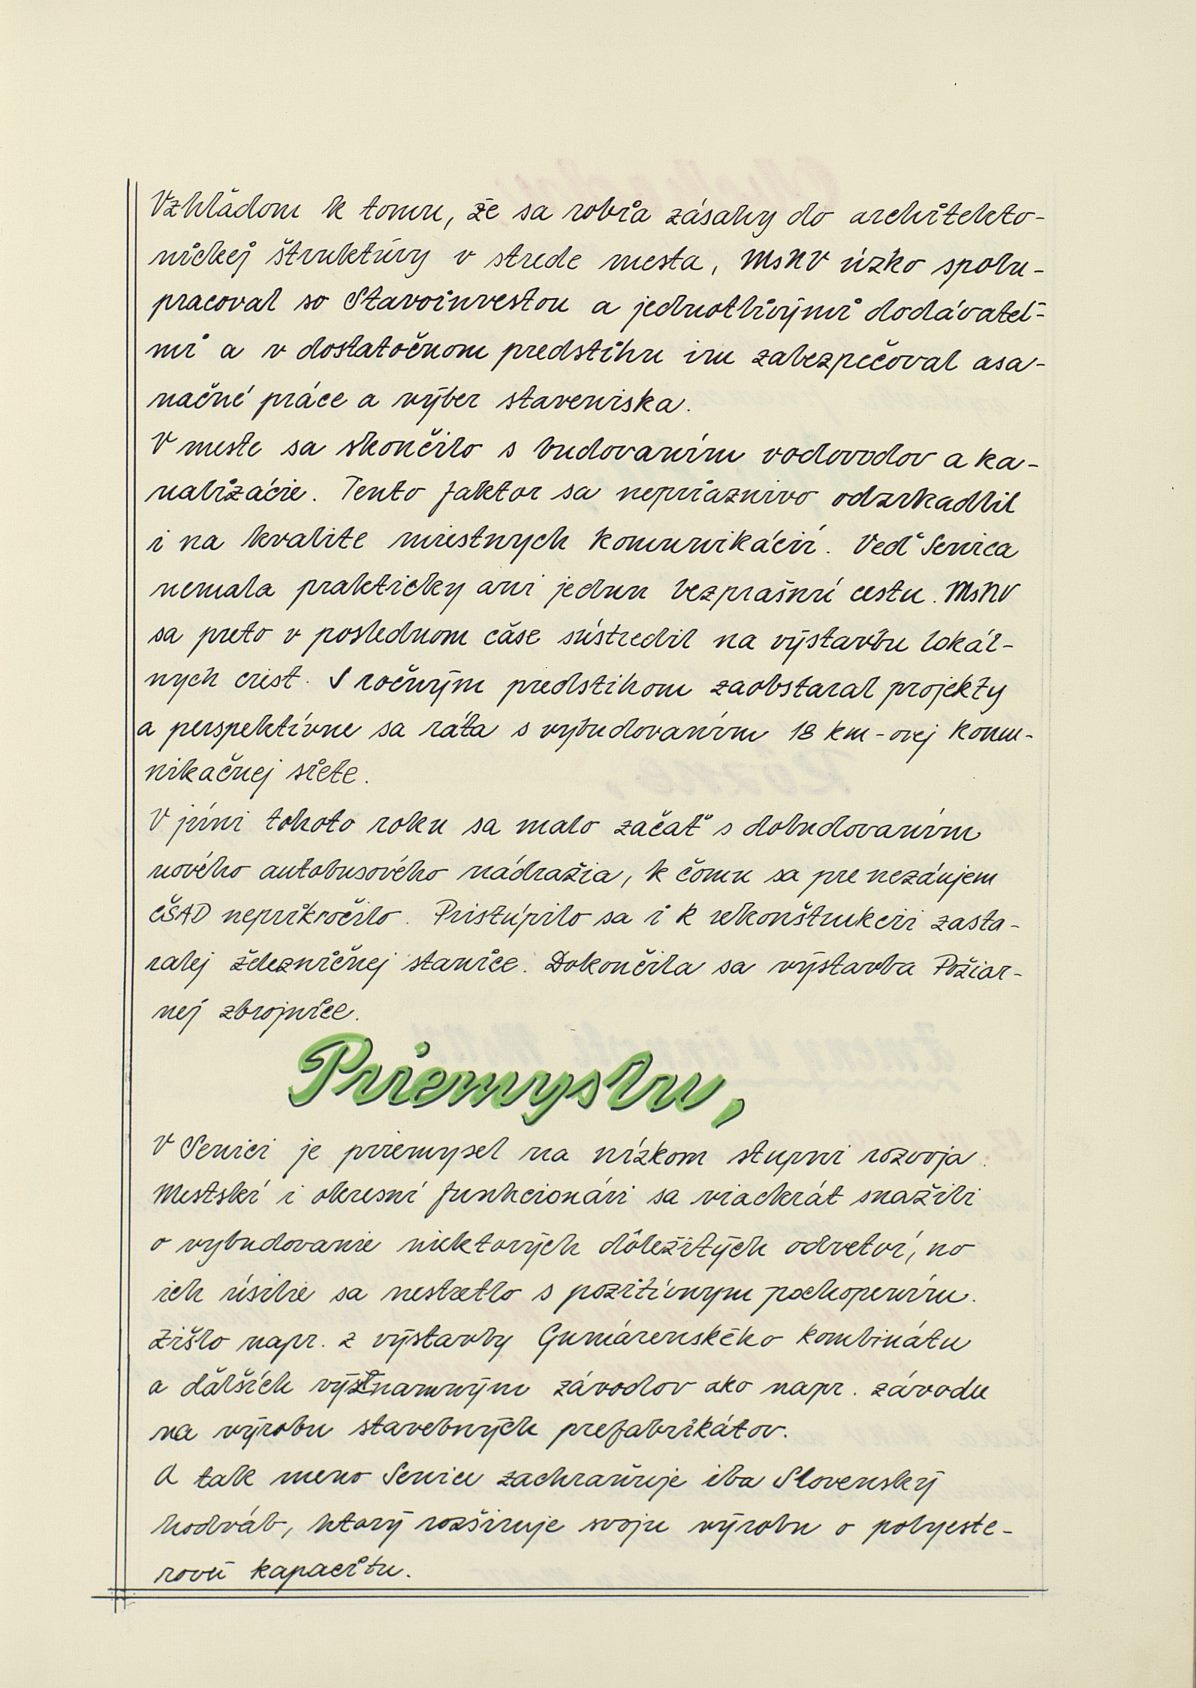 Vzhľadom k tomu, že sa robia zásahy do architekto-
nickej štruktúry v strede mesta, MsNV úzko spolu-
pracoval so Stavoinvestou a jednotlivými dodávateľ-
mi a v dostatočnom predstihu im zabezpečoval asa-
načné práce a výber staveniska.
V meste sa skončilo s budovaním vodovodov a ka-
nalizácie. Tento faktor sa nepriaznivo odzrkadlil
i na kvalite miestnych komunikácií. Veď Senica
nemala prakticky ani jednu bezprašnú cestu. MsNV
sa preto v poslednom čase sústredil na výstavbu lokál-
nych ciest. S ročným predstihom zaobstaral projekty
a perspektívne sa ráta s vybudovaním 18 km-ovej komu-
nikačnej siete.
V júni tohoto roku sa malo začať s dobudovaním
nového autobusového nádražia, k čomu sa pre nezáujem
ČSAD neprikročilo. Pristúpilo sa i k rekonštrukcii zasta-
ralej železničnej stanice. Dokončila sa výstavba Požiar-
nej zbrojnice.
Priemyslu,
V Senici je priemysel na nízkom stupni rozvoja.
Mestskí i okresní funkcionári sa viackrát snažili
o vybudovanie niektorých dôležitých odvetví, no
ich úsilie sa nestretlo s pozitívnym pochopením.
Zišlo napr. z výstavby Gumárenského kombinátu
a ďalších významným závodov ako napr. závodu
na výrobu stavebných prefabrikátov.
A tak meno Senice zachraňuje iba Slovenský
hodváb, ktorý rozširuje svoju výrobu o polyeste-
rovú kapacitu.